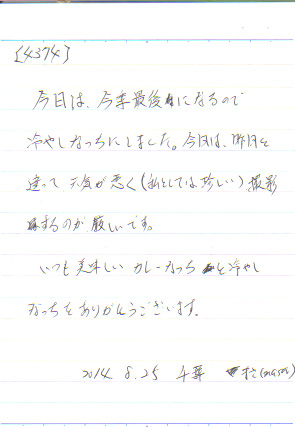 [4374]
今日は、今季最後になるので
冷やしなっちにしました。今日は、昨日と
違って天気が悪く(私としては珍しい)撮影
するのが厳しいです。
いつも美味しいカレーなっちと冷やし
なっちをありがとうございます。
2014 8.25 千葉